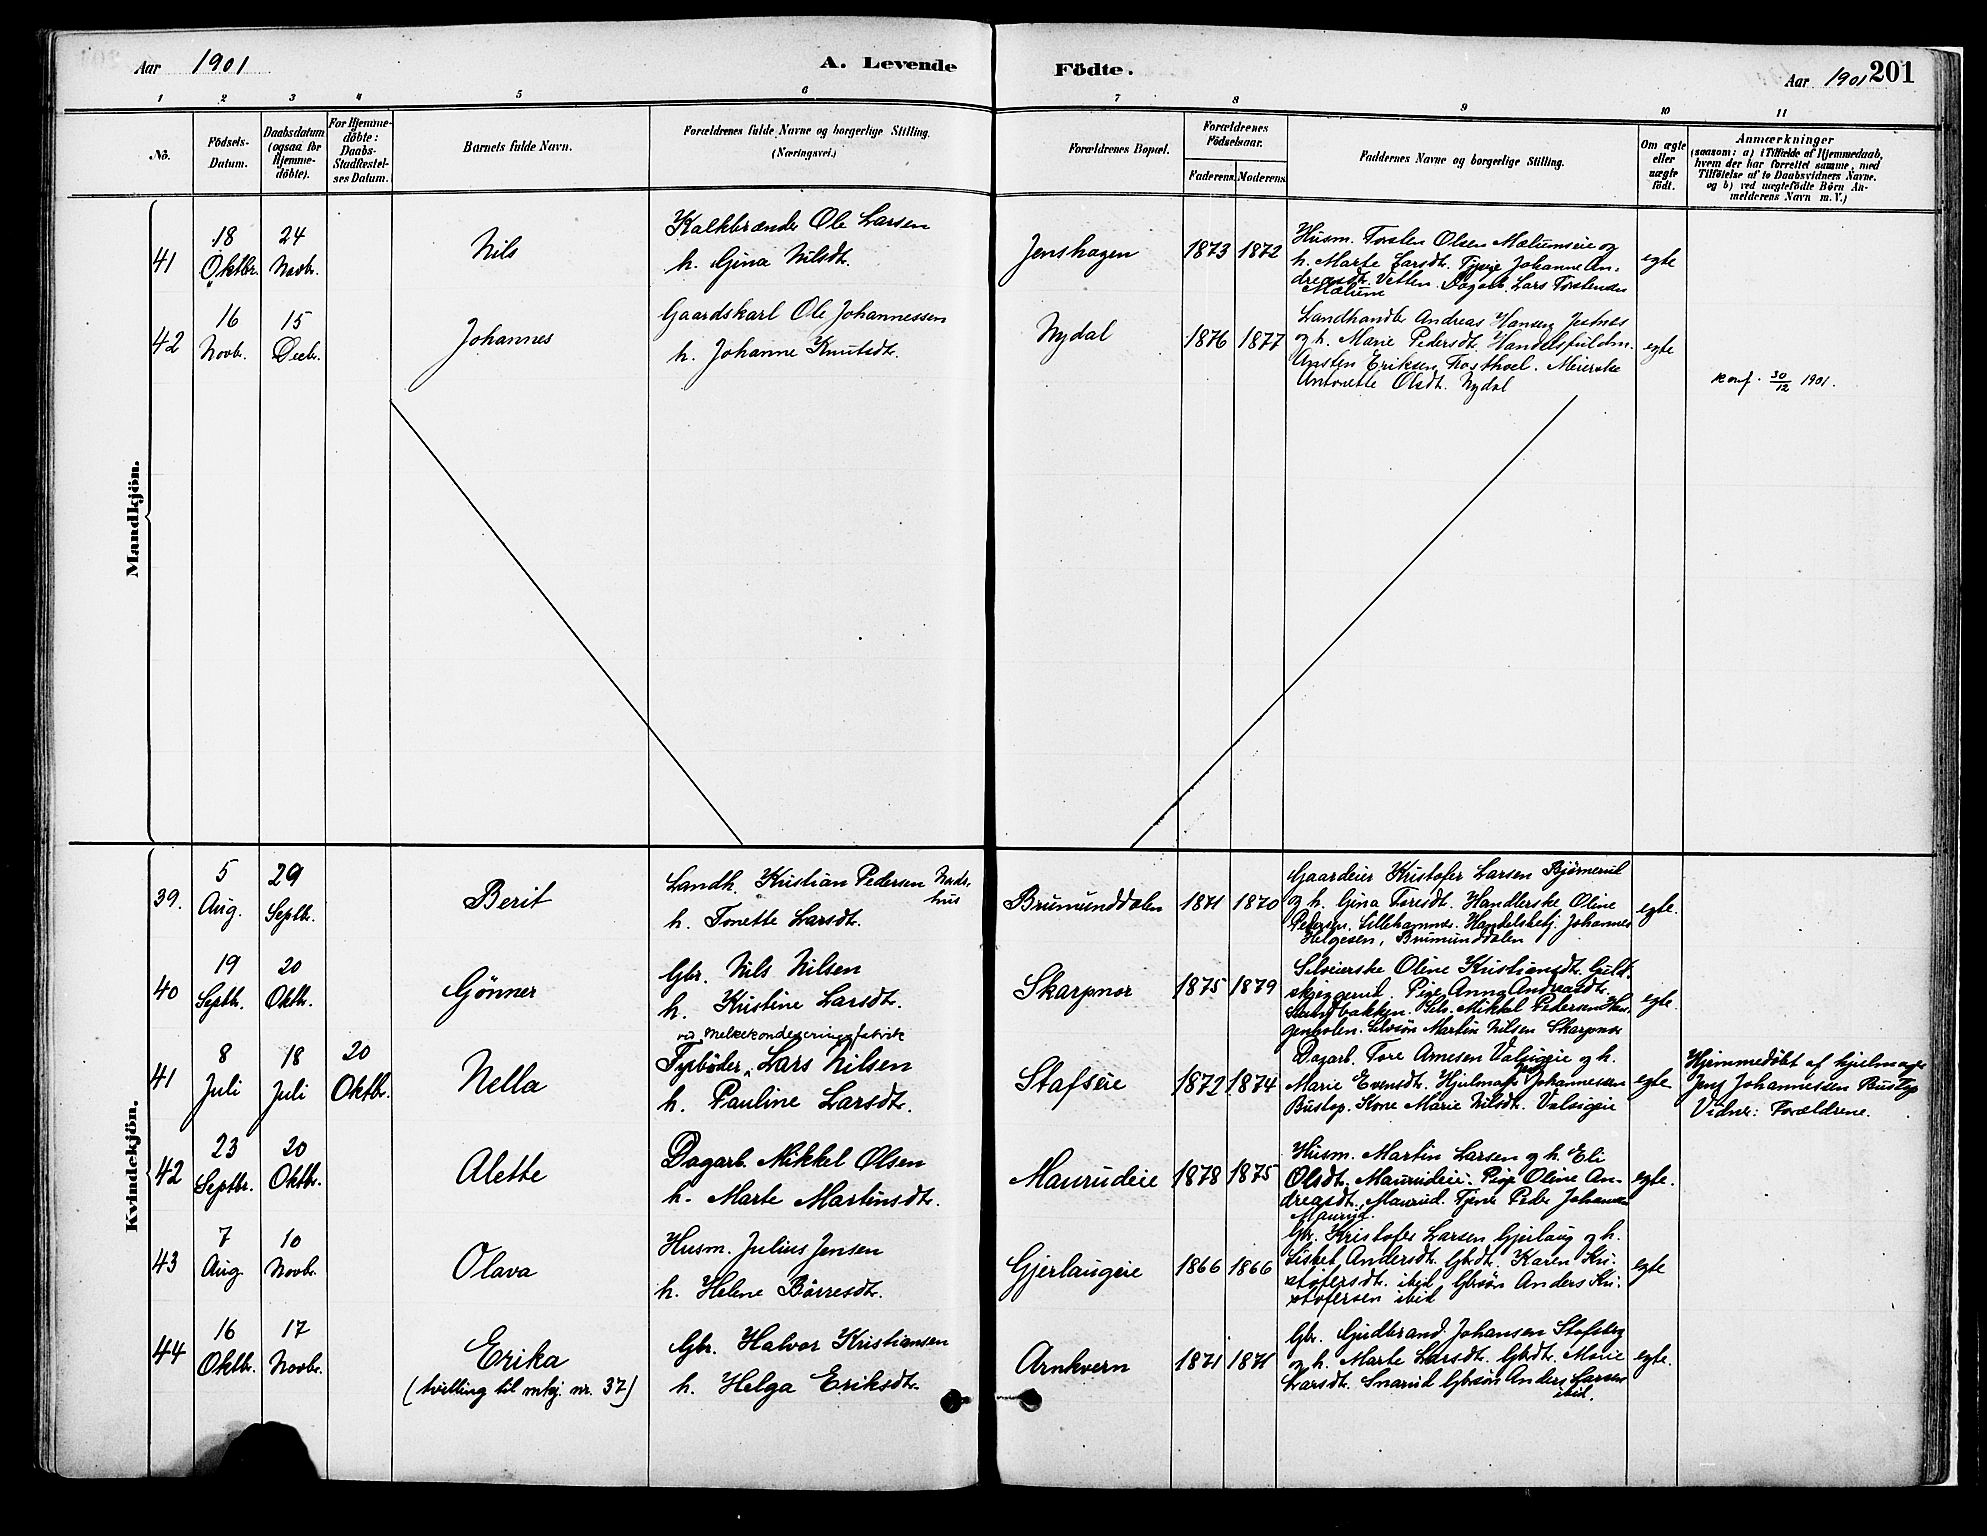 Aar 1901
A. Levende
Födte.
Aar 1901
201
1 2 3 4 5 6 7 8 9 10 11
No.
Födsels-
Datum.
Daabsdatum
(ogsaa for
Hjemme-
döbte).
For Hjemme-
döbte:
Daabs-
Stadfæstel-
ses Datum.
Barnets fulde Navn.
Forældrenes fulde Navne og borgerlige Stilling.
(Næringsvei.)
Forældrenes Bopæl.
Forældrenes
Födselsaar.
Faderens. Moderens.
Faddernes Navne og borgerlige Stilling.
Om ægte
eller
uægte
født.
Anmærkninger
(saasom: a) i Tilfælde af Hjemmedaab,
hvem der har forrettet samme, med
Tilföielse af to Daabsvidners Navne.
og b) ved uægtefödte Börn An-
melderens Navn m. V.)
Mandkjön.
41
18
Oktbr.
24
Novbr.
Nils
Kalkbrænder Ole Larsen
h. Gina Nilsdt.
Jenshagen
1873 1872
Husm. Torsten Olsen Mælumseie og
h. Marte Larsdt. Johanne An-
dreasdt. Vetten. Dagarb. Lars Torstensen
Mælum
egte
42
16
Novbr.
15
Decbr.
Johannes
Gaardskarl Ole Johannessen
h. Johanne Knutsdt.
Nydal
1876 1877
Landhandler Andreas Hansen Jesnes
og h. Marie Pedersdt.
Eriksen Meierske
Antonette Olsdt. Nydal
egte
konf. 30/12 1901.
Kvindekjön.
39.
5
Aug.
29
Septbr.
Berit
Landh. Kristian Pedersen Nedre-
hus
h. Tonette Larsdt.
Brumunddalen
1871 1870
Gaardeier Kristofer Larsen Bjørnerud
og h. Gina Toresdt. Handlerske Oline
Pedersen. Lillehammer. Handelsbetj. Johannes
Helgesen, Brumunddalen
egte.
40
19
Septbr.
20
Oktbr.
Gönner
Gbr. Nils Nilsen
h. Kristine Larsdt.
Skarpnor
1875 1879
Selveierske Oline Kristiansdt. Guld-
skjeggerud. Pige Anna Andreasdt.
Mikkel Pedersen
Selvsön Martin Nilsen Skarpnor
egte.
41
8
Juli
18
Juli
20
Oktbr.
Nella
ved Melkekondenseringsfabrik
Fyrböder, Lars Nilsen
h. Pauline Larsdt.
Stafseie
1872 1874
Dagarb. Tore Arnesen Valseie og h.
Marie Evensdt. Hjulmager Jens Johannessen
Bustop. Kone Marie Nilsdt.
egte
Hjemmedöbt af hjulmager
Jens Johannessen Bustop
Vidner: Forældrene.
42
23
Septbr.
20
Oktbr.
Alette
Dagarb. Mikkel Olsen
h. Marte Martinsdt.
Maurudeie
1878 1875
Husm. Martin Larsen og h. Eli
Olsdt. Maurudeie. Pige Oline An-
dreasdt, Maurud. Tjener Peder Johansen
Maurud.
egte.
43
7
Aug.
10
Novbr.
Olava
Husm. Julius Jensen
h. Helene Börresdt.
Gjerlaugeie
1866 1866
Gbr. Kristofer Larsen Gjerlaug og h.
Lisbet Andersdt. Gbdt. Karen Kri-
stofersdt. ibid. Gbrsön Anders Kri-
stofersen ibid
egte
44
16
Oktbr.
17
Novbr.
Erika
(tvilling til mkj. nr. 37)
Gbr. Halvor Kristiansen
h. Helga Eriksdt.
Arnkvern
1871 1871
Gbr. Gudbrand Johansen Stafsberg
og h. Marte Larsdt. Gbdt. Marie
Larsdt. Snarud Gbrsön Anders Larsen
ibid.
egte.